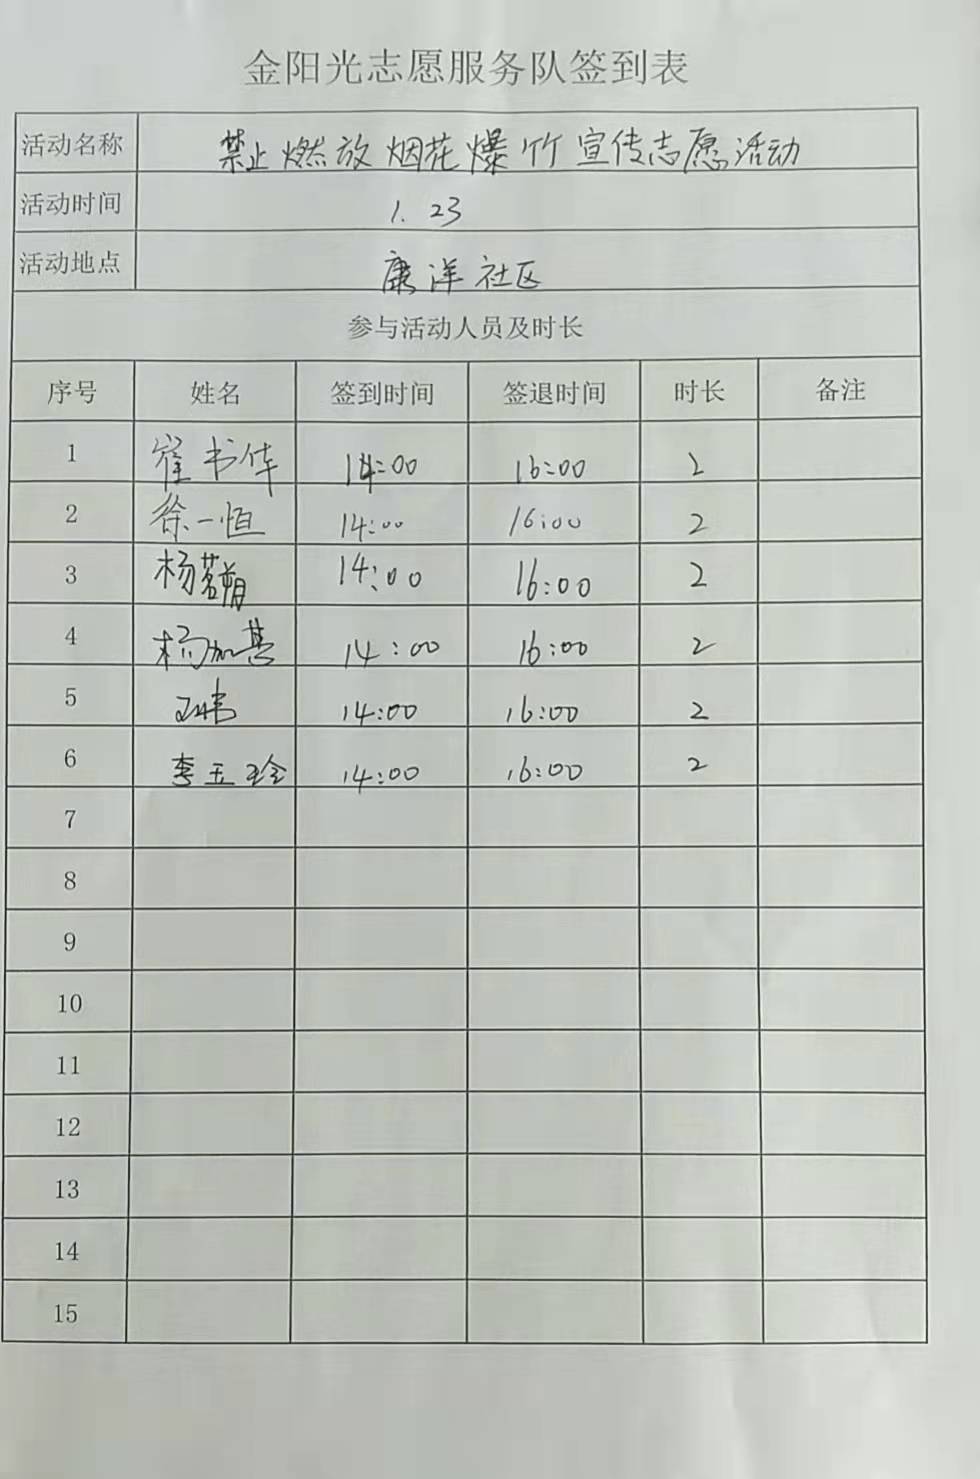 金阳光志愿服务队签到表
活动名称 禁止燃放烟花爆竹宣传志愿活动
活动时间 1.23
活动地点 康洋社区
参与活动人员及时长
序号 姓名 签到时间 签退时间 时长 备注
1 崔书华 14:00 16:00 2
2 徐一恒 14:00 16:00 2
3 杨茗朔 14:00 16:00 2
4 杨加基 14:00 16:00 2
5 王玮 14:00 16:00 2
6 李玉玲 14:00 16:00 2
7
8
9
10
11
12
13
14
15